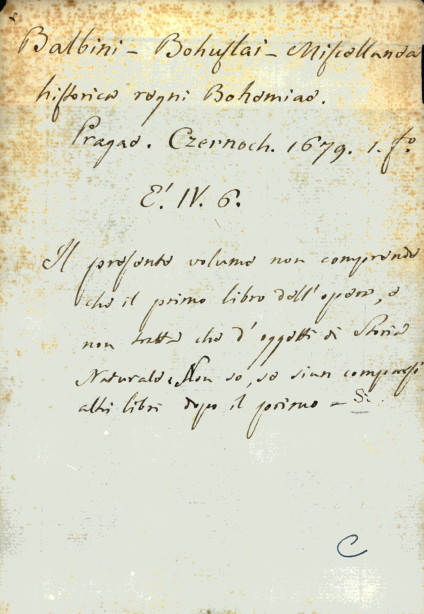 Balbini - Bohuslai - Miscellanea
historica regni Bohemiae.
Pragae. Czernoch. 1679. 1. fo.
E'. IV. 6.
Il presente volume non comprende
che il primo libro dell'opera, e
non tratta che d'oggetti di Storia
Naturale. Non so, se sian comparsi
altri libri dopo il primo - S:
C